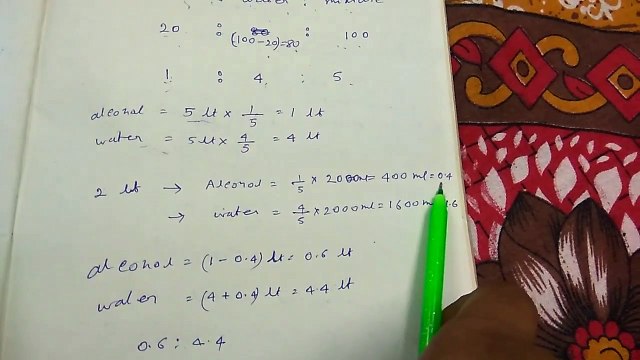 : water : mixture
20 : (100-20)=80 : 100
1 : 4 : 5
alcohol = 5 lt × 1/5 = 1 lt
water = 5 lt × 4/5 = 4 lt
2 lt → Alcohol = 1/5 × 2000ml = 400 ml = 0.4
→ water = 4/5 × 2000 ml = 1600 m 1.6
alcohol = (1-0.4) lt = 0.6 lt
water = (4+0.4) lt = 4.4 lt
0.6 : 4.4